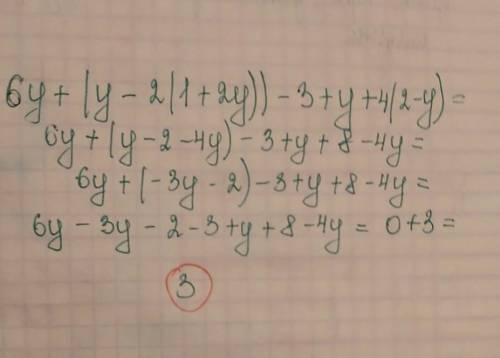 6y + (y - 2(1 + 2y)) - 3 + y + 4(2 - y) =
6y + (y - 2 - 4y) - 3 + y + 8 - 4y =
6y + (-3y - 2) - 3 + y + 8 - 4y =
6y - 3y - 2 - 3 + y + 8 - 4y = 0 + 3 =
3